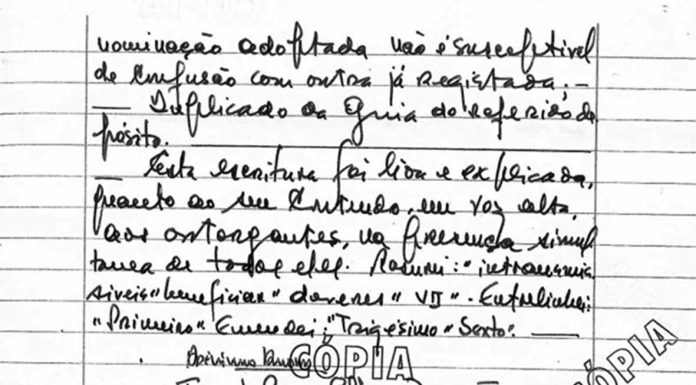 nominação adoptada não é susceptivel
de confusão com outra já registada;-
— Duplicado da Guia do referido de
pósito.
— Esta escritura foi lida e explicada,
quanto ao seu conteudo, em voz alta,
aos outorgantes, na presença simul
tanea de todos eles. Rasurei: "intransmis
siveis" beneficiar" deveres" VII". Entrelinhei:
"Primeiro" Emendei: "Trigésimo" Sexto". —
CÓPIA
CÓPIA